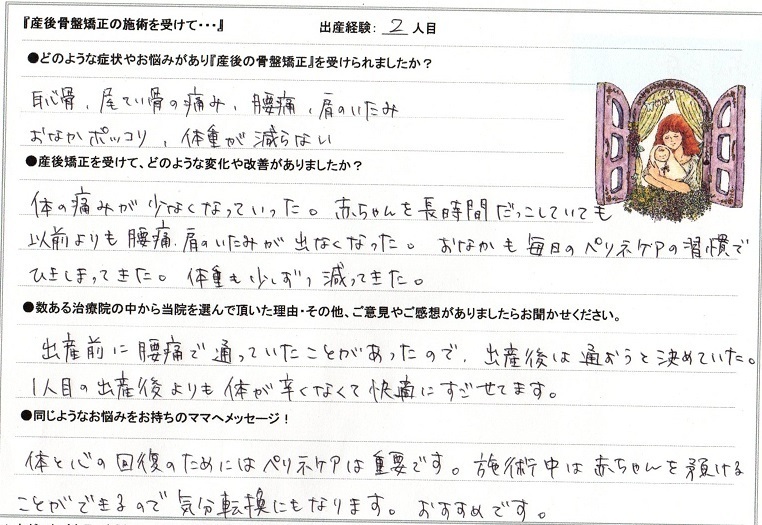 『産後骨盤矯正の施術を受けて・・・』 出産経験： 2 人目
●どのような症状やお悩みがあり『産後の骨盤矯正』を受けられましたか？
恥骨、尾てい骨の痛み、腰痛、肩のいたみ
おなかポッコリ、体重が減らない
●産後矯正を受けて、どのような変化や改善がありましたか？
体の痛みが少なくなっていった。赤ちゃんを長時間だっこしていても
以前よりも腰痛、肩のいたみが出なくなった。おなかも毎日のペリネケアの習慣で
ひきしまってきた。体重も少しずつ減ってきた。
●数ある治療院の中から当院を選んで頂いた理由・その他、ご意見やご感想がありましたらお聞かせください。
出産前に腰痛で通っていたことがあったので、出産後は通おうと決めていた。
1人目の出産後よりも体が辛くなくて快適にすごせてます。
●同じようなお悩みをお持ちのママへメッセージ！
体と心の回復のためにはペリネケアは重要です。施術中は赤ちゃんを預ける
ことができるので気分転換にもなります。おすすめです。